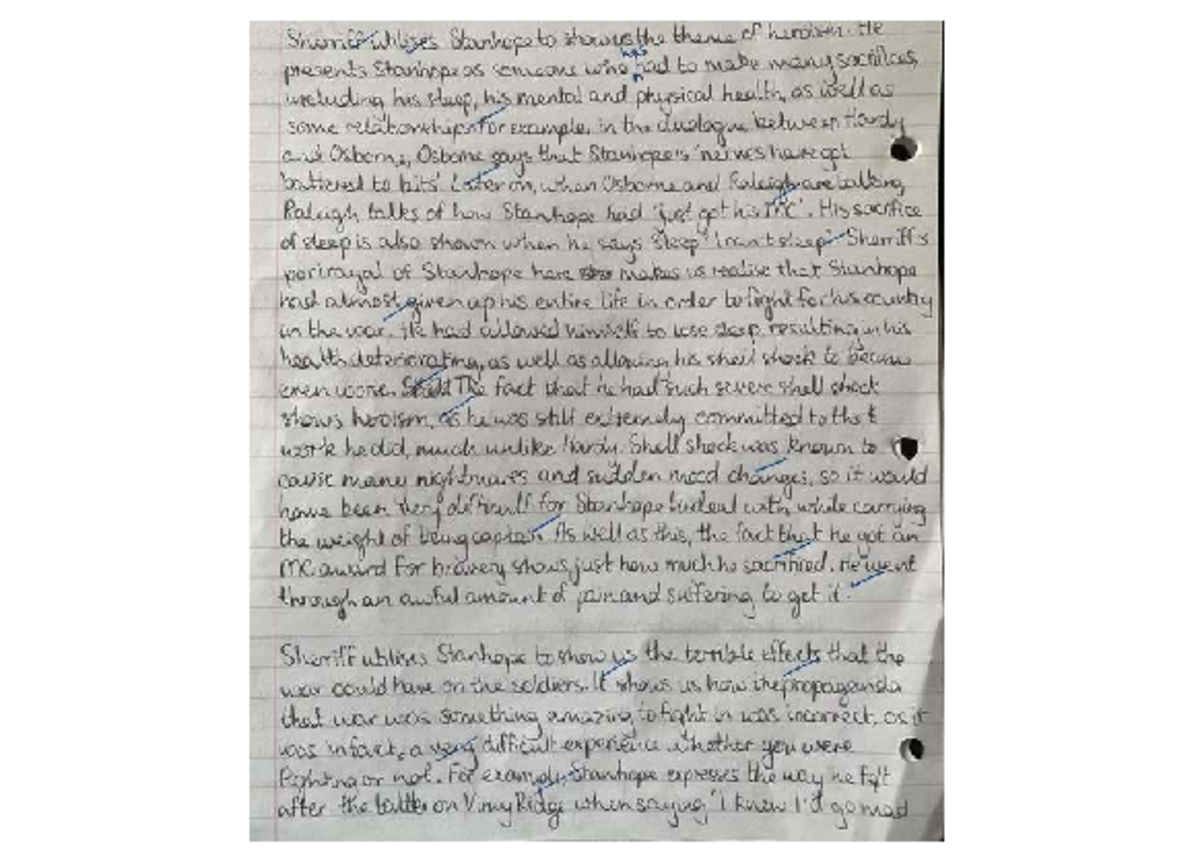 Sherriff utilises Stanhope to show us the theme of heroism. He
presents Stanhope as someone who has had to make many sacrifices,
including his sleep, his mental and physical health, as well as
some relationships. For example, in the duologue between Hardy
and Osborne, Osborne says that Stanhope's 'nerves have got
battered to bits'. Later on, when Osborne and Raleigh are talking,
Raleigh talks of how Stanhope had 'just got his MC'. His sacrifice
of sleep is also shown when he says 'Sleep? I can't sleep'. Sherriff's
portrayal of Stanhope here makes us realise that Stanhope
had almost given up his entire life in order to fight for his country
in the war. He had allowed himself to lose sleep, resulting in his
health deteriorating, as well as allowing his shell shock to become
even worse. The fact that he had such severe shell shock
shows heroism, as he was still extremely committed to the
work he did, much unlike Hardy. Shell shock was known to
cause many nightmares and sudden mood changes, so it would
have been very difficult for Stanhope to deal with while carrying
the weight of being captain. As well as this, the fact that he got an
MC award for bravery shows just how much he sacrificed. He went
through an awful amount of pain and suffering to get it.
Sherriff utilises Stanhope to show us the terrible effects that the
war could have on the soldiers. It shows us how the propaganda
that war was something amazing to fight in was incorrect, as it
was in fact, a very difficult experience whether you were
fighting or not. For example, Stanhope expresses the way he felt
after the battle on Vimy Ridge when saying 'I knew I'd go mad